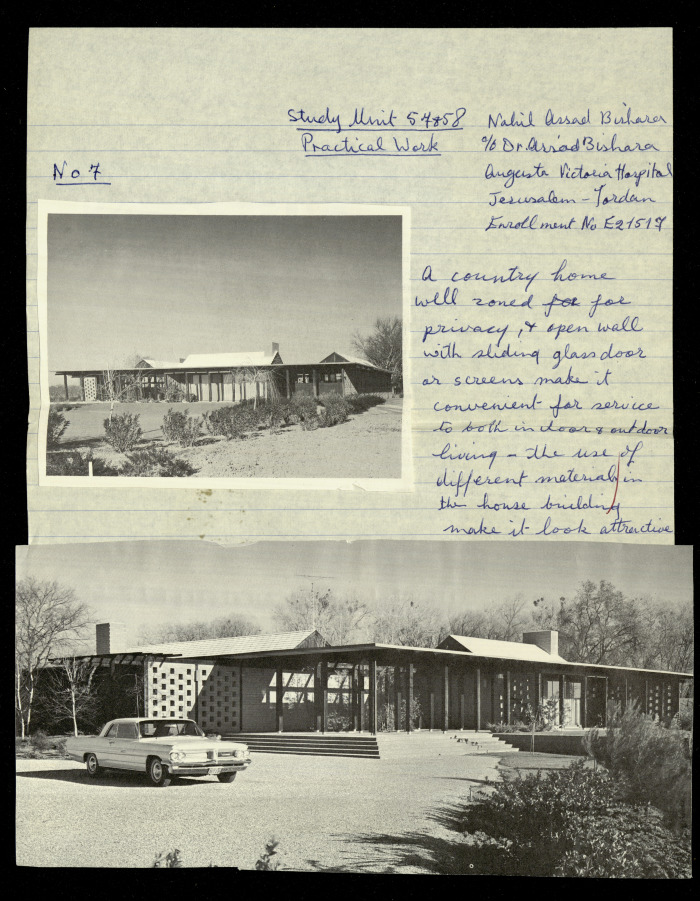 Study Unit 57&58
Practical Work
Nahil Assad Bishara
c/o Dr. Assad Bishara
Augusta Victoria Hospital
Jerusalem - Jordan
Enrollment No E21517
No 7
A country home
well zoned for for
privacy, & open wall
with sliding glass door
or screens make it
convenient for service
to both indoor & outdoor
living - the use of
different materials in
the house building
make it look attractive